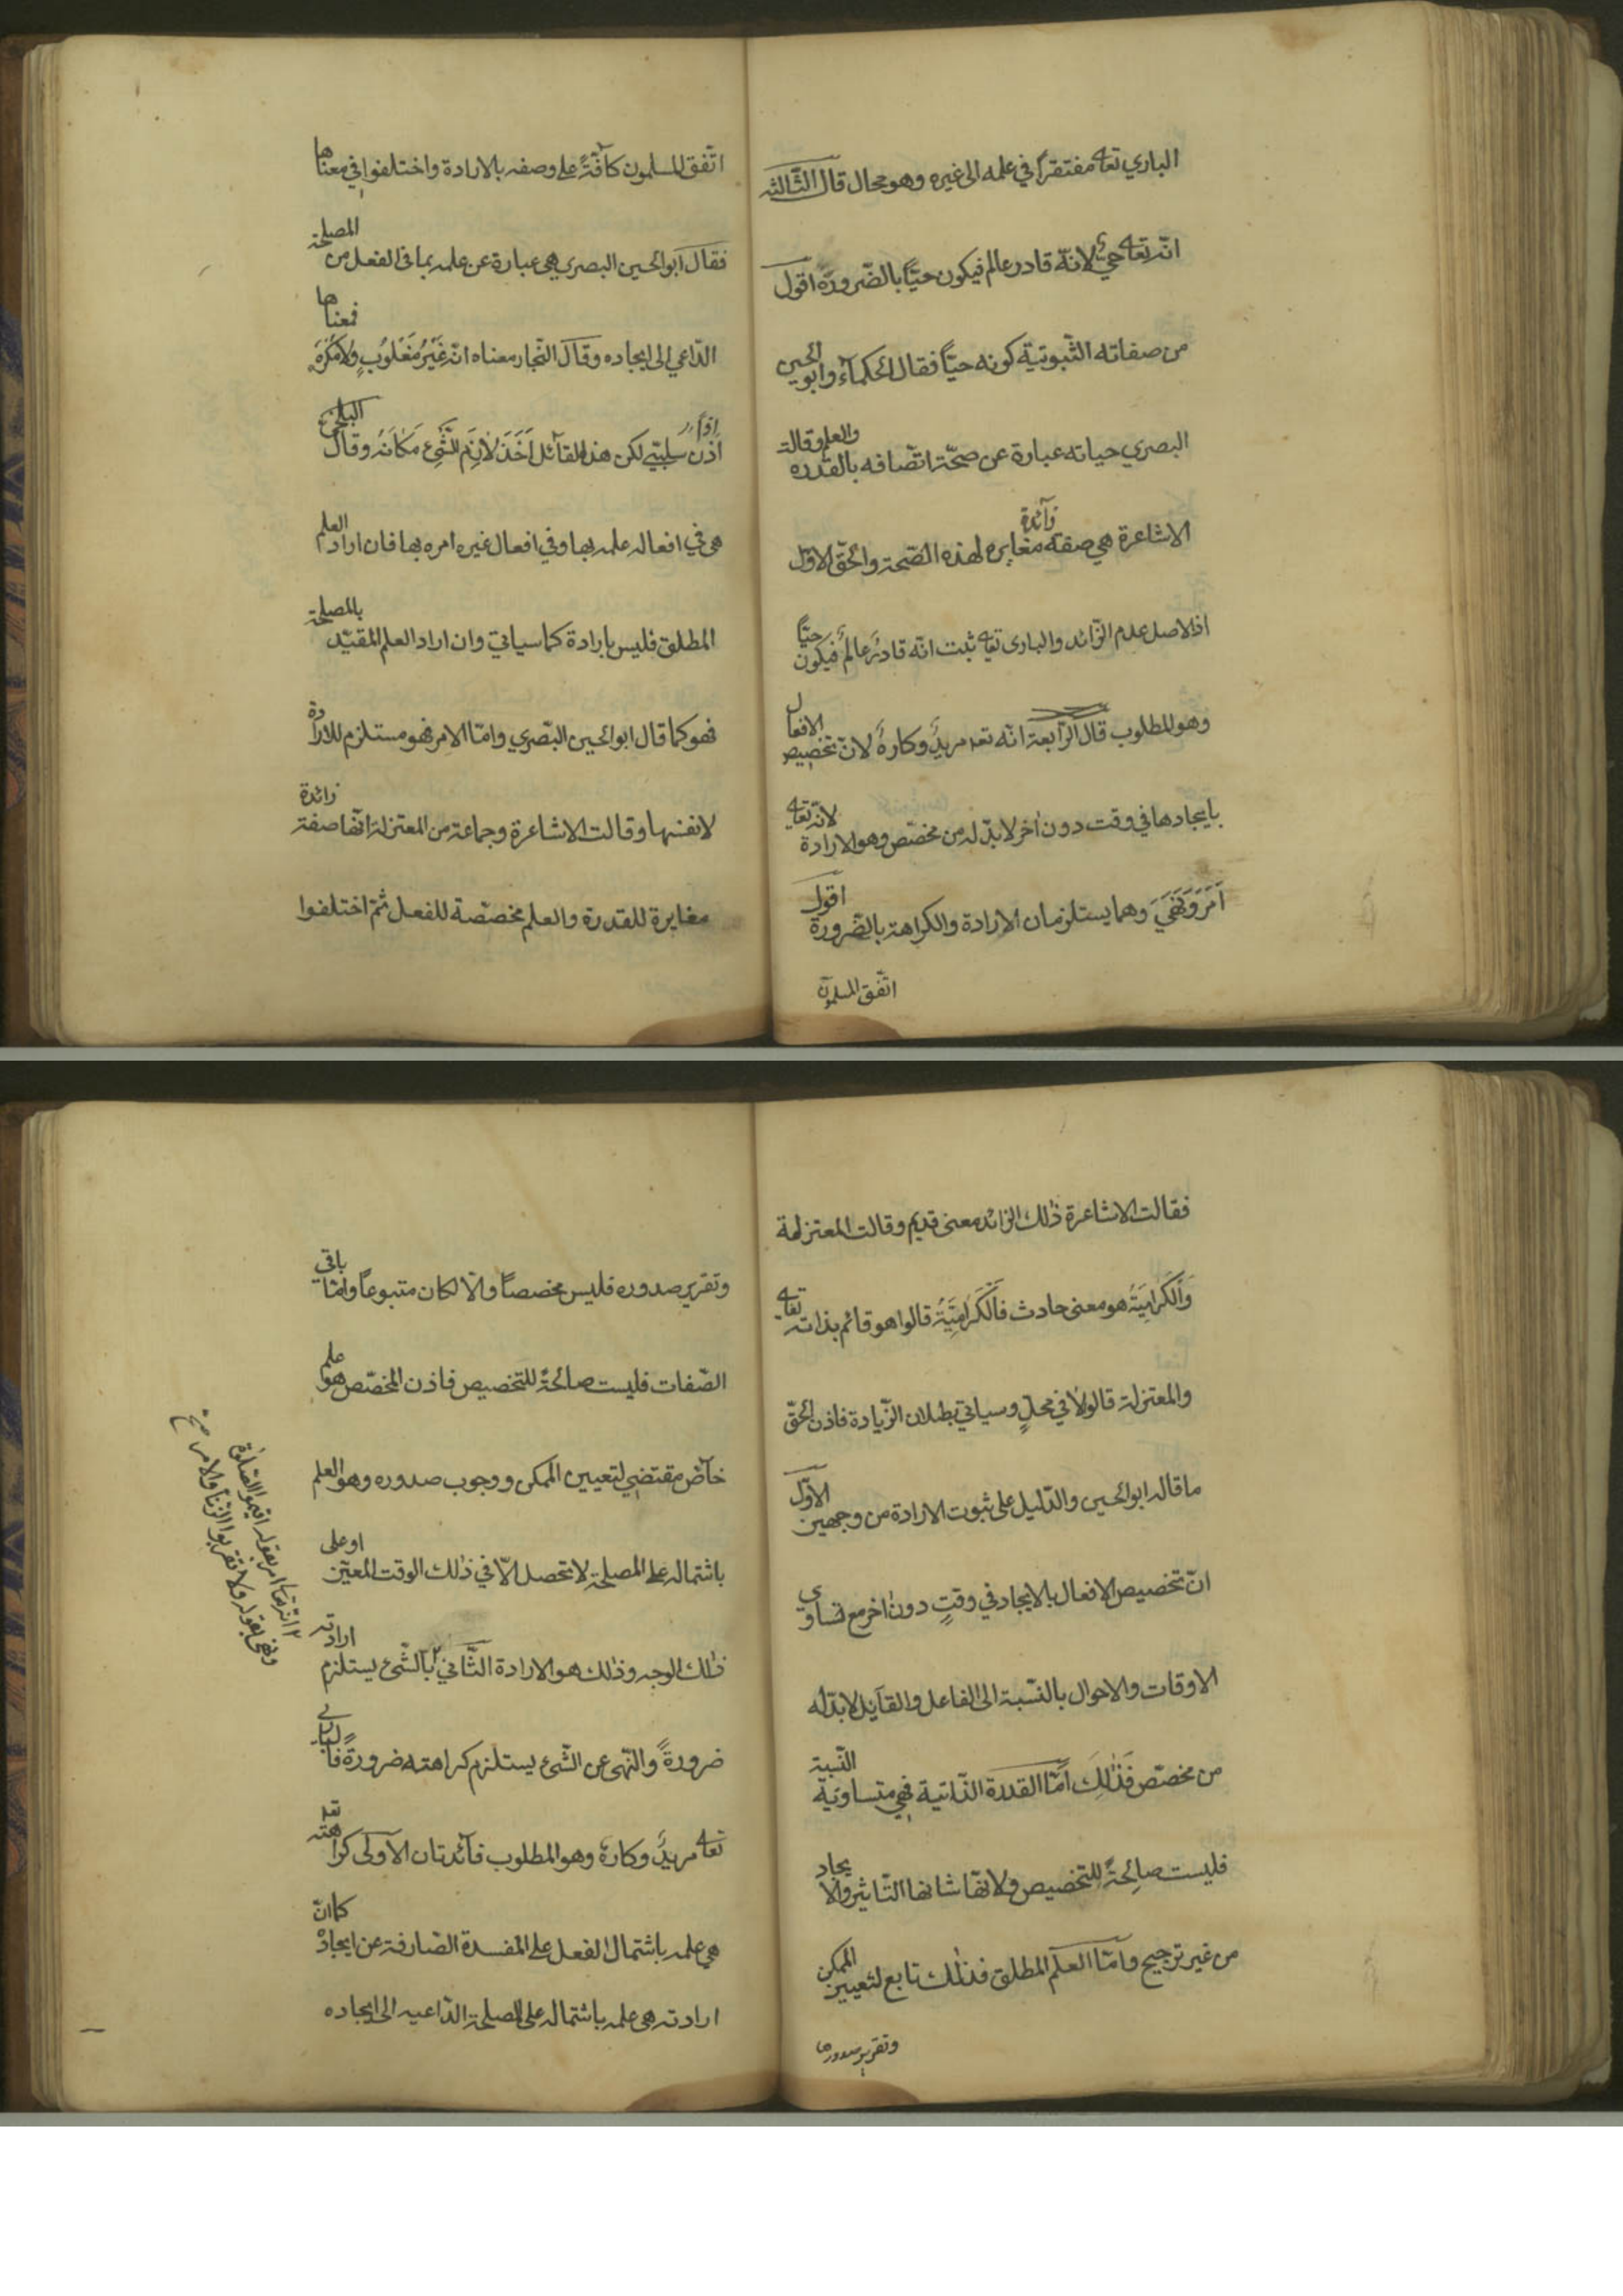 الباري تعا مفتقراً في علمه الى غيره وهو محال قال الثّالثة
انّه تعا حيٌّ لانّه قادر عالم فيكون حيّاً بالضّرورة اقول
من صفاته الثّبوتيّة كونه حيّاً فقال الحكمآء وابو الحسين
البصري حياته عبارة عن صحّة اتّصافه بالقدرة والعلم وقالة
الاشاعرة هي صفة زآئدة مغايرة لهذه الصّحة والحقّ الاوّل
اذ الاصل عدم الزّائد والبارى تعا ثبت انّه قادرٌ عالمٌ فيكون حيّاً
وهو المطلوب قال الرّابعة انّه تعا مريدٌ وكارهٌ لانّ تخصيص الافعال
بايجادها في وقت دون اخر لابدّ له من مخصّص وهو الارادة لانّه تعا
اَمَرَ وَنَهَيَ وهما يستلزمان الارادة والكراهة بالضّرورة اقول
اتّفق المسلمون
اتّفق المسلمون كآفّةً على وصفه بالارادة واختلفوا في معناها
فقال ابو الحسين البصري هي عبارة عن علمه بما فى الفعل من المصلحة
الدّاعي الى ايجاده وقال النّجار معناه انّه غَيْرُ مَغْلُوبٍ ولا مُكْرَهٍ فمعناها
اذن سلبيّ لكن هذا القآئل اَخَذَ لازِمَ الشَّيْءِ مَكَانَهُ وقال البلخيّ
اذاً
هى في افعاله علمه بها وفي افعال غيره امره بها فان اراد العلم
المطلق فليس بارادة كما سياتي وان اراد العلم المقيّد بالمصلحة
فهو كما قال ابو الحسين البصري وامّا الامر فهو مستلزم للارادة
لا نفسها وقالت الاشاعرة وجماعة من المعتزلة انّها صفة زائدة
مغايرة للقدرة والعلم مخصّصة للفعل ثمّ اختلفوا
فقالت الاشاعرة ذلك الزّائد معنى قديم وقالت المعتزلة
وَالْكَرّامِيَةُ هو معنى حادث فَالْكَرّامِيَّةُ قالوا هو قائم بذاته تعا
والمعتزلة قالوا لا في محلٍّ وسياتي بطلان الزّيادة فاذن الحقّ
ما قاله ابو الحسين والدّليل على ثبوت الارادة من وجهين الاوّل
انّ تخصيص الافعال بالايجاد في وقتٍ دون اخر مع تساوي
الاوقات والاحوال بالنّسبة الى الفاعل والقآبل لابدّ له
من مخصّص فَذٰلِكَ امّا القدرة الذّاتية فهي متساوية النّسبة
فليست صالِحةً للتّخصيص ولانّها شانها التّاثير والايجاد
من غير ترجيح وامّا العلم المطلق فذلك تابع لتعيين الممكن
وتقرير صدورها
وتقرير صدوره فليس مخصصاً والّا لكان متبوعاً وامّا باقي
الصّفات فليست صالحةً للتخصيص فاذن المخصّص هو علم
خآصّ مقتضي لتعيين الممكن ووجوب صدوره وهو العلم
باشتماله على المصلحة لا تحصل الّا في ذلك الوقت المعيّن او على
ذلك الوجه وذلك هو الارادة الثّاني بالشّئ يستلزم ارادته
ضرورةً والنّهى عن الشّئ يستلزم كراهته ضرورةً فالباري
تعا مريدٌ وكارهٌ وهو المطلوب فآئدتان الاولى كراهته تعا
هي علمه باشتمال الفعل على المفسدة الصّارفة عن ايجاده كما انّ
ارادته هى علمه باشتماله على المصلحة الدّاعيه الى ايجاده
انّه تعا امر بقوله اقيموا الصّلوة
ونهى بقوله ولا تقربوا الزّنا والامر صح